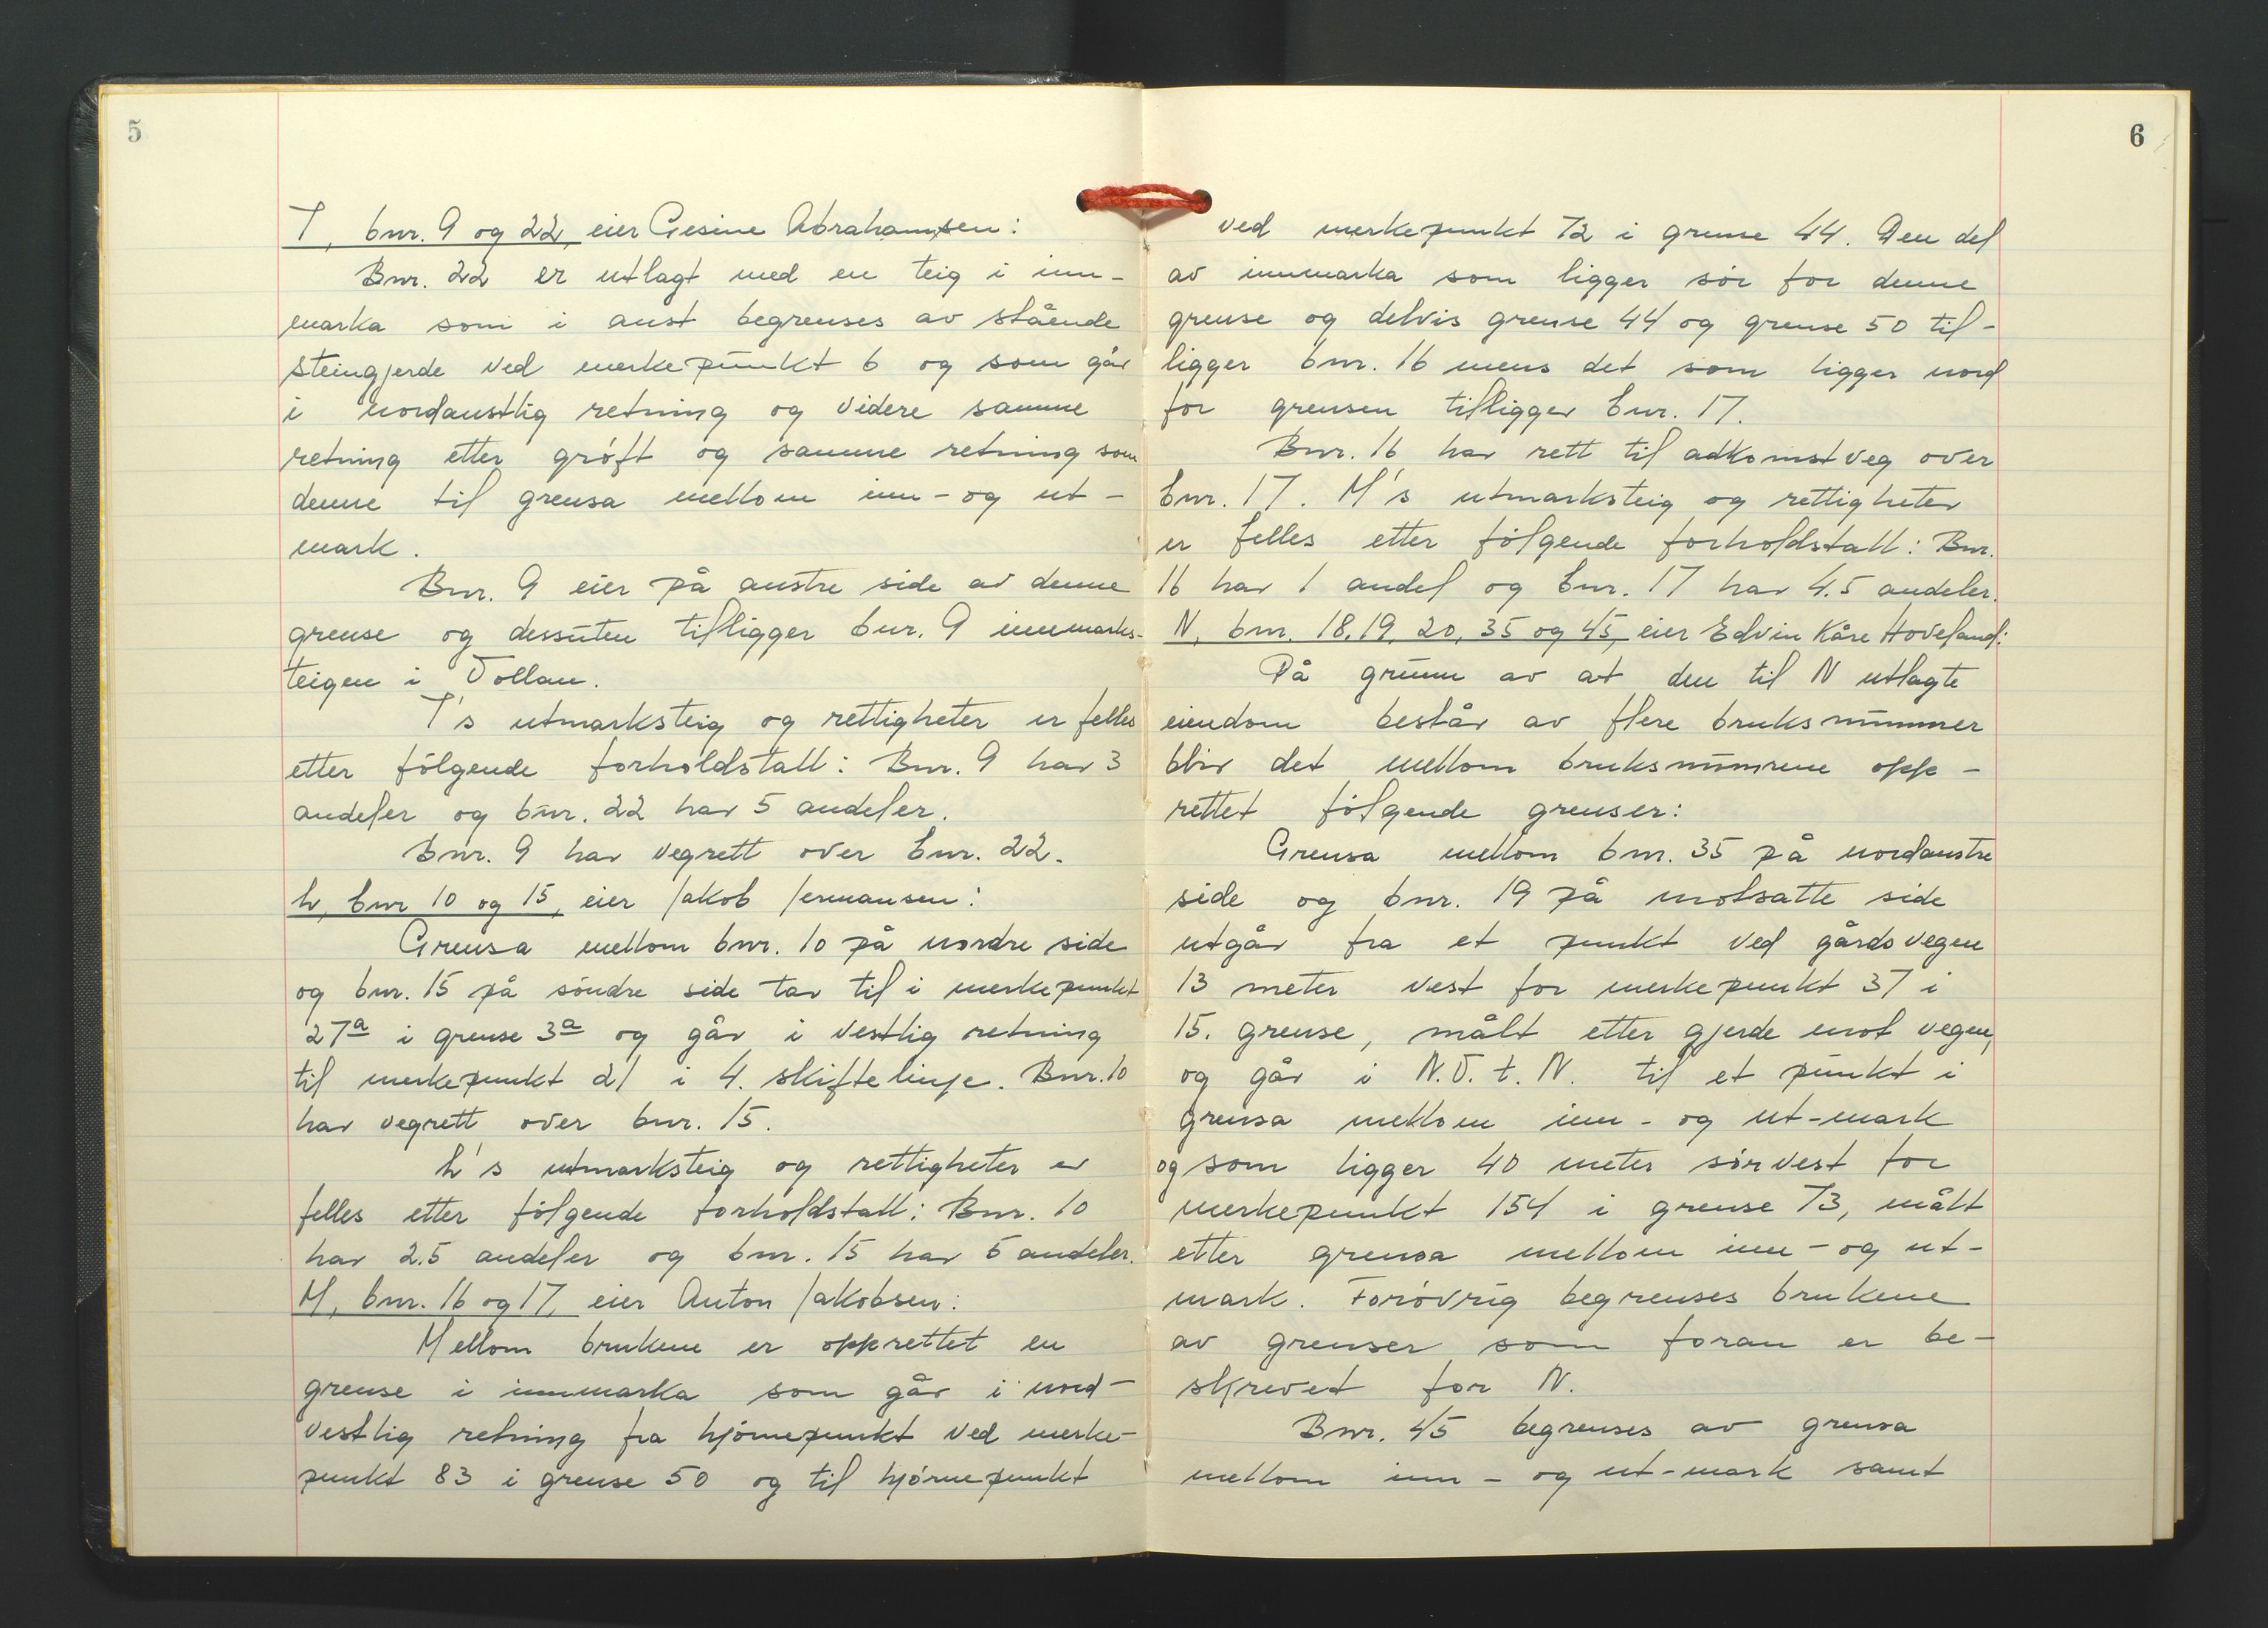 5
I, bnr. 9 og 22, eier Gesine Abrahamsen:
Bnr. 22 er utlagt med en teig i inn-
marka som i aust begrenses av stående
steingjerde ved merkepunkt 6 og som går
i nordaustlig retning og videre samme
retning etter grøft og samme retning som
denne til grensa mellom inn- og ut-
mark.
Bnr. 9 eier på austre side av denne
grense og dessuten tilligger bnr. 9 innmarks-
teigen i Vollan.
I's utmarksteig og rettigheter er felles
etter følgende forholdstall: Bnr. 9 har 3
andeler og bnr. 22 har 5 andeler.
Bnr. 9 har vegrett over bnr. 22.
L, bnr 10 og 15, eier Jakob Jermansen:
Grensa mellom bnr. 10 på nordre side
og bnr. 15 på søndre side tar til i merkepunkt
27a i grense 3a og går i vestlig retning
til merkepunkt 21 i 4. skiftelinje. Bnr. 10
har vegrett over bnr. 15.
L's utmarksteig og rettigheter er
felles etter følgende forholdstall: Bnr. 10
har 2.5 andeler og bnr. 15 har 5 andeler.
M, bnr. 16 og 17, eier Anton Jakobsen:
Mellom brukene er opprettet en
grense i innmarka som går i nord-
vestlig retning fra hjørnepunkt ved merke-
punkt 83 i grense 50 og til hjørnepunkt
6
ved merkepunkt 72 i grense 44. Den del
av innmarka som ligger sør for denne
grense og delvis grense 44 og grense 50 til-
ligger bnr. 16 mens det som ligger nord
for grensen tilligger bnr. 17.
Bnr. 16 har rett til adkomstveg over
bnr. 17. M's utmarksteig og rettigheter
er felles etter følgende forholdstall: Bnr.
16 har 1 andel og bnr. 17 har 4.5 andeler.
N, bnr. 18, 19, 20, 35 og 45, eier Edvin Kåre Hoveland:
På grunn av at den til N utlagte
eiendom består av flere bruksnummer
blir det mellom bruksnumrene opp-
rettet følgende grenser:
Grensa mellom bnr. 35 på nordaustre
side og bnr. 19 på motsatte side
utgår fra et punkt ved gårdsvegen
13 meter vest for merkepunkt 37 i
15. grense, målt etter gjerde mot vegen,
og går i N.V. t. N. til et punkt i
grensa mellom inn- og ut-mark
og som ligger 40 meter sørvest for
merkepunkt 154 i grense 73, målt
etter grensa mellom inn- og ut-
mark. Forøvrig begrenses brukene
av grenser som foran er be-
skrevet for N.
Bnr. 45 begrenses av grensa
mellom inn- og ut-mark samt